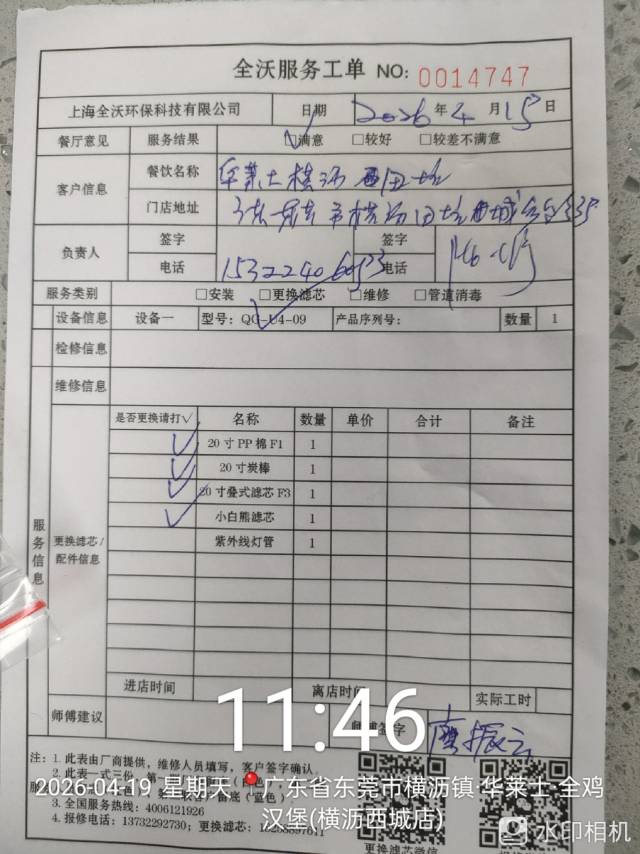 全沃服务工单 NO: 0014747
上海全沃环保科技有限公司 日期 2026年4月15日
餐厅意见 服务结果 ☑满意 □较好 □较差不满意
客户信息 餐饮名称 华莱士横沥西田坑
门店地址 市横沥田坑西城
负责人 签字 签字
电话 电话
服务类别 □安装 □更换滤芯 □维修 □管道消毒
设备信息 设备一 型号: QG-U4-09 产品序列号: 数量 1
检修信息
维修信息
是否更换请打√ 名称 数量 单价 合计 备注
√ 20寸PP棉F1 1
√ 20寸炭棒 1
√ 20寸叠式滤芯F3 1
√ 小白熊滤芯 1
紫外线灯管 1
服务信息 更换滤芯/配件信息
进店时间 离店时间 实际工时
师傅建议 师傅签字
11:46
注: 1. 此表由厂商提供, 维修人员填写, 客户签字确认
2. 此表一式三份,
2026-04-19 星期天 广东省东莞市横沥镇·华莱士·全鸡汉堡(横沥西城店)
3. 全国服务热线: 4006121926
4. 报修电话: 13732292730; 更换滤芯:
更换滤芯微信
水印相机